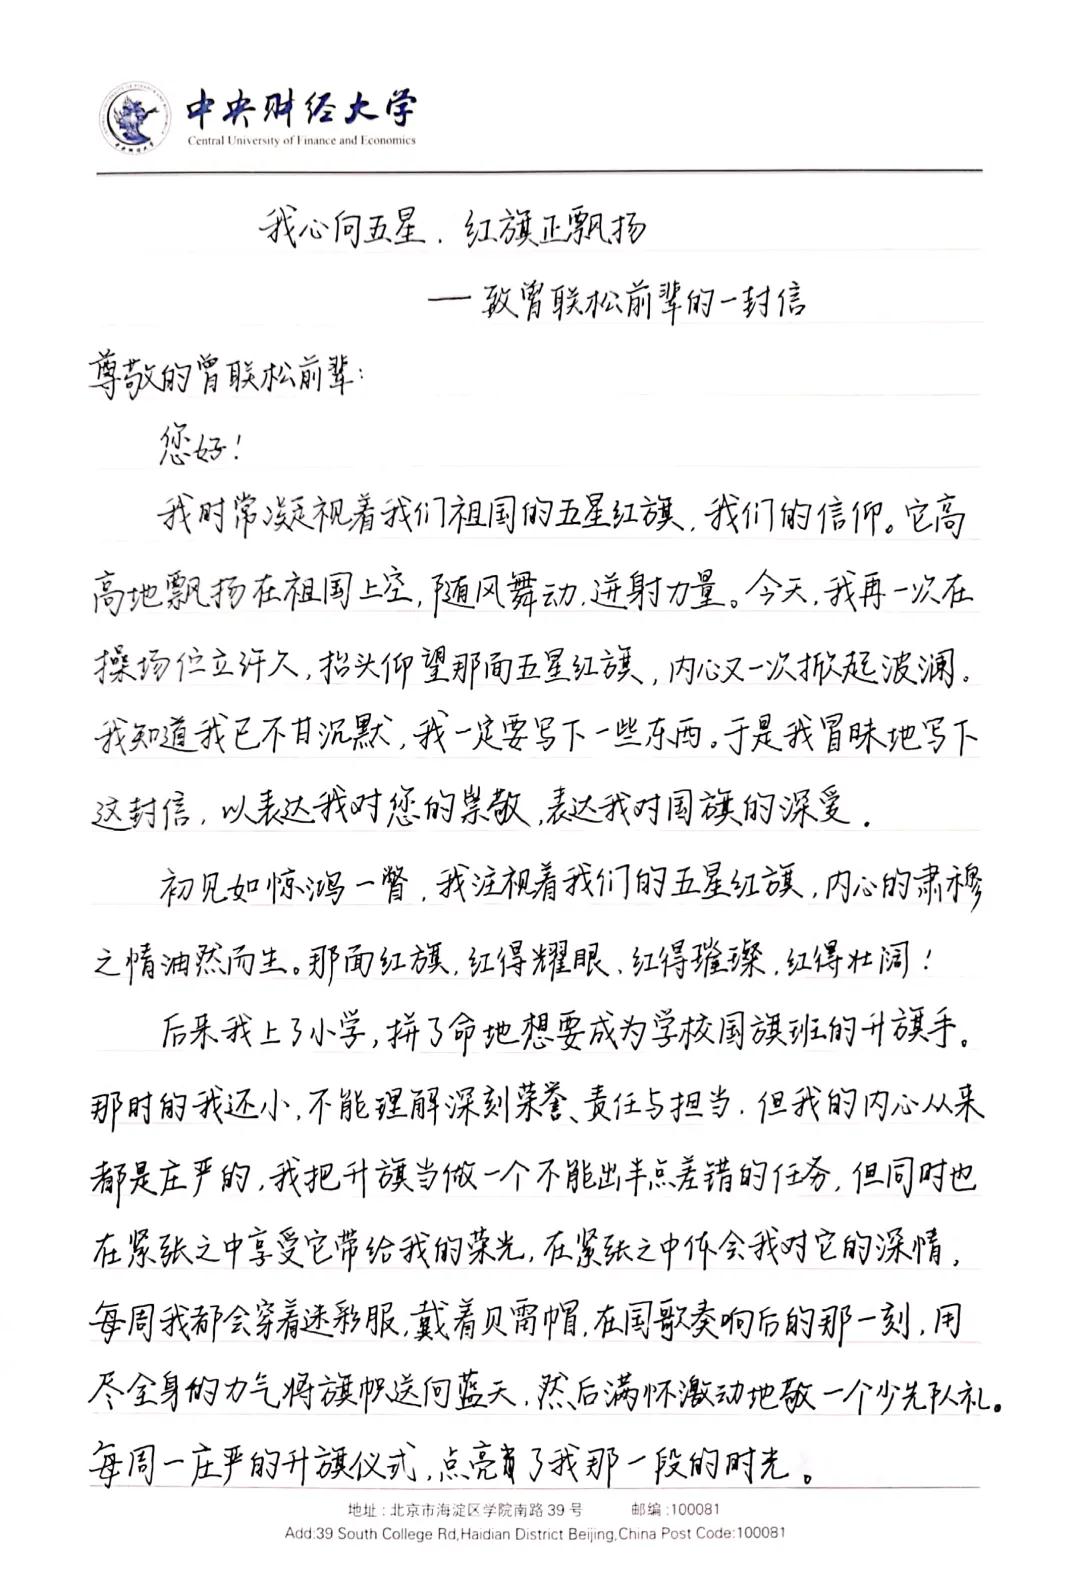 中央财经大学
Central University of Finance and Economics
我心向五星，红旗正飘扬
——致曾联松前辈的一封信
尊敬的曾联松前辈：
您好！
我时常凝视着我们祖国的五星红旗，我们的信仰。它高
高地飘扬在祖国上空，随风舞动，迸射力量。今天，我再一次在
操场伫立许久，抬头仰望那面五星红旗，内心又一次掀起波澜。
我知道我已不甘沉默，我一定要写下一些东西。于是我冒昧地写下
这封信，以表达我对您的崇敬，表达我对国旗的深爱。
初见如惊鸿一瞥，我注视着我们的五星红旗，内心的肃穆
之情油然而生。那面红旗，红得耀眼、红得璀璨，红得壮阔！
后来我上了小学，拼了命地想要成为学校国旗班的升旗手。
那时的我还小，不能理解深刻荣誉、责任与担当，但我的内心从来
都是庄严的，我把升旗当做一个不能出半点差错的任务，但同时也
在紧张之中享受它带给我的荣光，在紧张之中体会我对它的深情，
每周我都会穿着迷彩服，戴着贝雷帽，在国歌奏响后的那一刻，用
尽全身的力气将旗帜送向蓝天，然后满怀激动地敬一个少先队礼。
每周一庄严的升旗仪式，点亮了我那一段的时光。
地址：北京市海淀区学院南路39号 邮编：100081
Add:39 South College Rd,Haidian District Beijing,China Post Code:100081